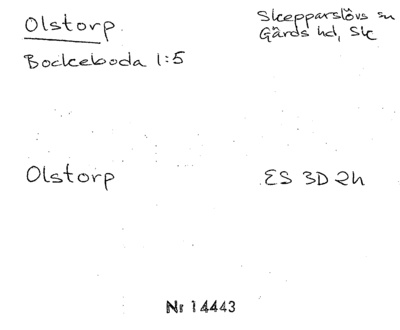 Olstorp
Skepparslövs sn
Gärds hd, Sk
Bockeboda 1:5
Olstorp
ES 3D 2h
Nr 14443